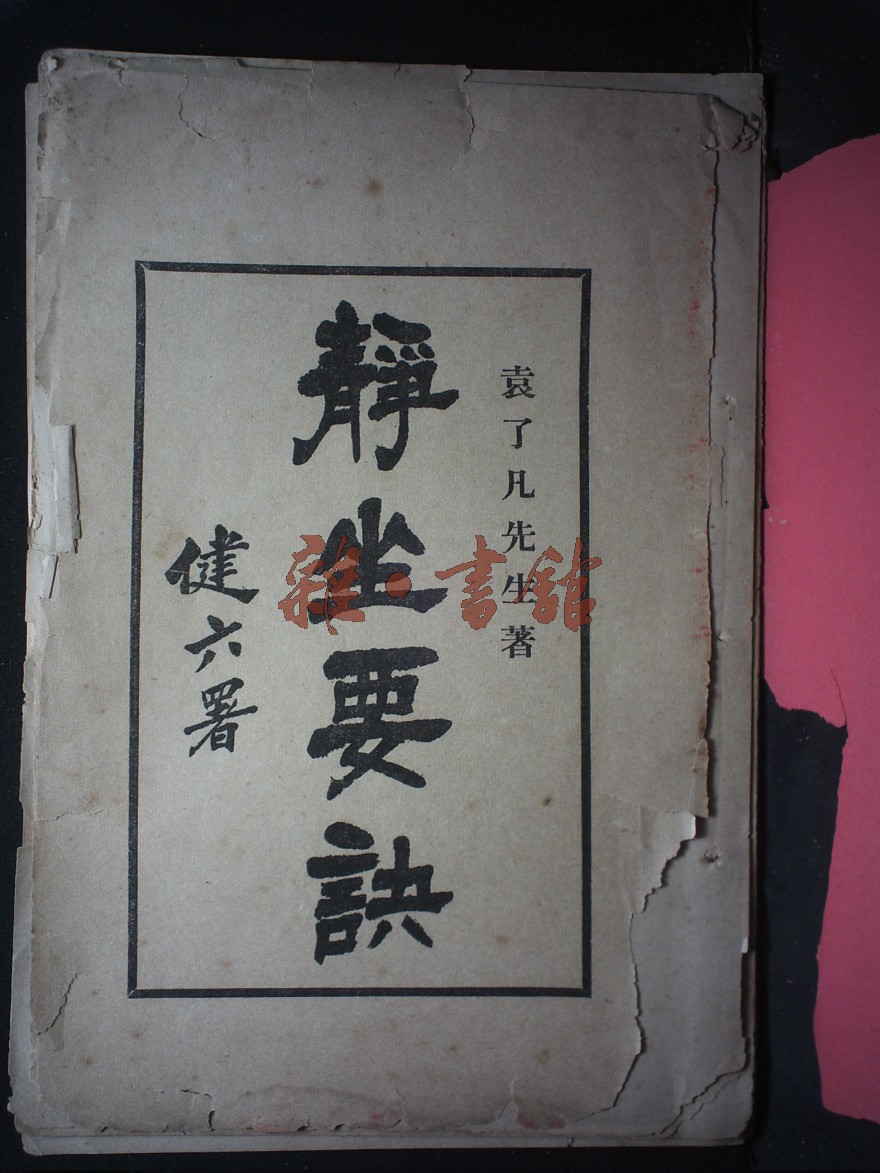 袁了凡先生著
靜坐要訣
健六署
雜·書館